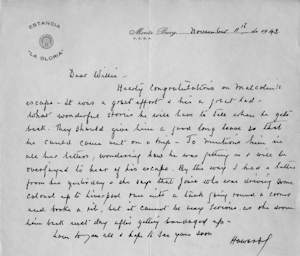 ESTANCIA
"LA GLORIA"
November 1st de 1942
Dear Willie -
Hearty Congratulations on Malcolm's
escape - it was a great effort & he's a great lad -
what wonderful stories he will have to tell when he gets
back. They should give him a good long leave so that
he could come out on a trip - mentions him in
all her letters, wondering how he was getting on & will be
overjoyed to hear of his escape. By the way I had a letter
from her yesterday & she says that John who was driving some
Colonel up to Liverpool ran into a truck going round a corner
and broke a rib, but it cannot be very serious, as she saw
him back next day after getting bandaged up -
Love to you all & hope to see you soon
Howard